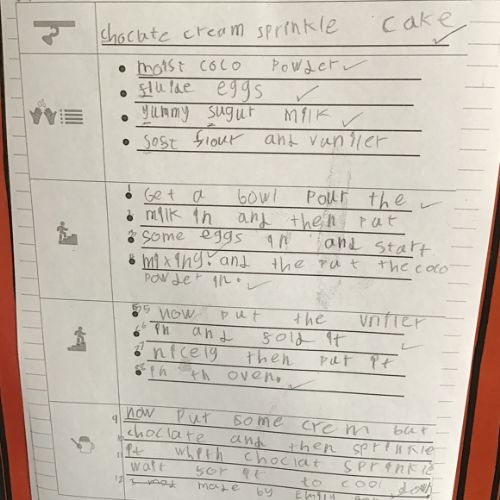 choclate cream sprinkle cake
moist coco powder
fluide eggs
yummy sugur milk
sost flour and vaniler
1 Get a bowl pour the
2 milk in and then put
3 some eggs in and start
4 mixing and the put the coco
powder in.
5 now put the vniler
6 in and fold it
7 nicely then put it
8 in th oven.
9 now put some crem but
10 choclate and then sprinkle
11 it whith choclat sprinkle
12 wait for it to cool down
made by